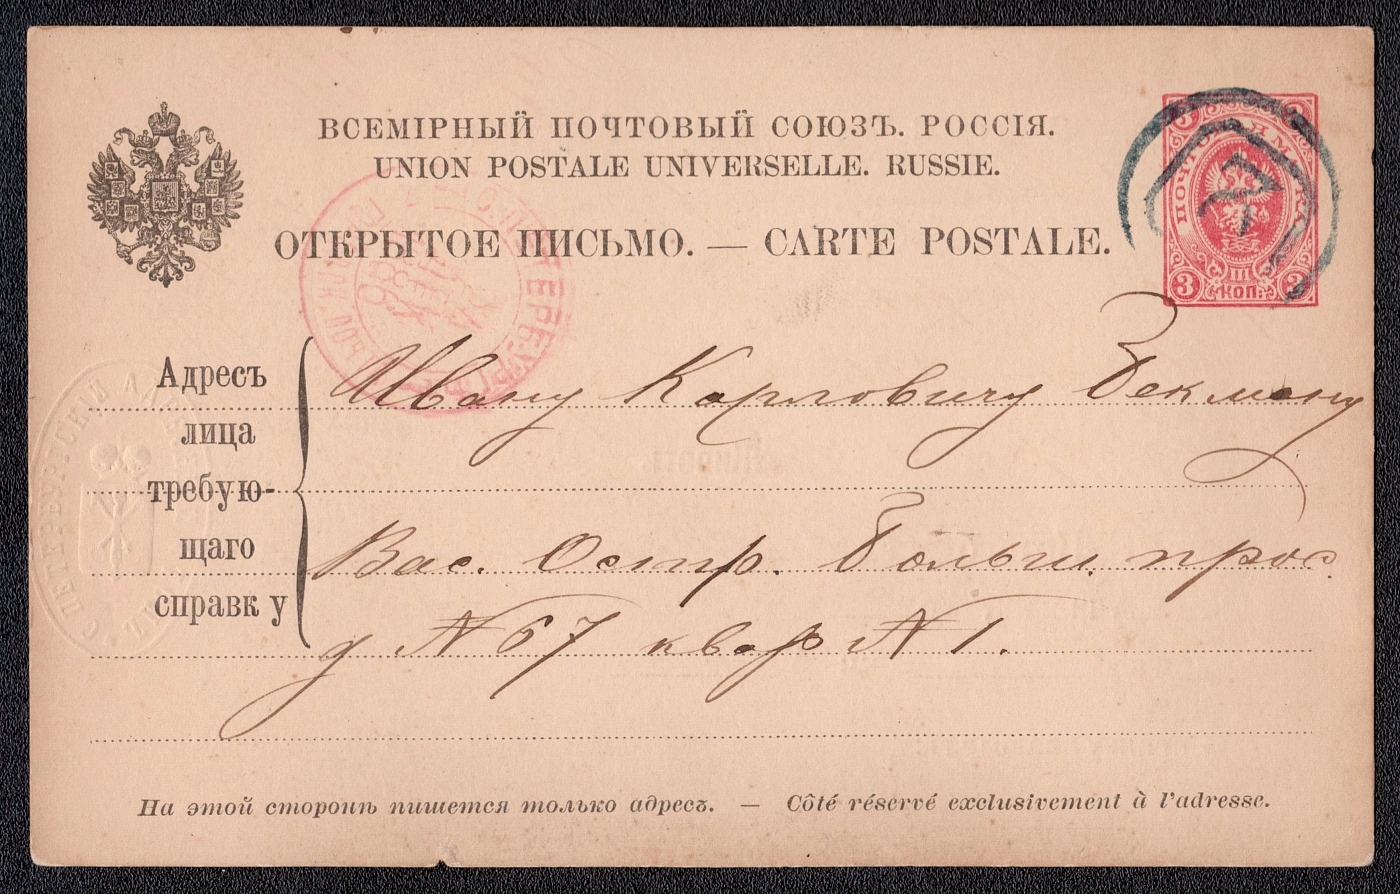 ВСЕМІРНЫЙ ПОЧТОВЫЙ СОЮЗЪ. РОССІЯ.
UNION POSTALE UNIVERSELLE. RUSSIE.
ОТКРЫТОЕ ПИСЬМО. — CARTE POSTALE.
ПОЧТОВАЯ МАРКА
3 3
3 КОП. 3
С.ПЕТЕРБУРГ
С ПЕТЕРБУРГСКІЙ
Адресъ
лица
требую-
щаго
справку
Ивану Карловичу Бекману
Вас. Остр. Больш. прос.
д N 67 квар N 1.
На этой сторонѣ пишется только адресъ. — Côté réservé exclusivement à l'adresse.